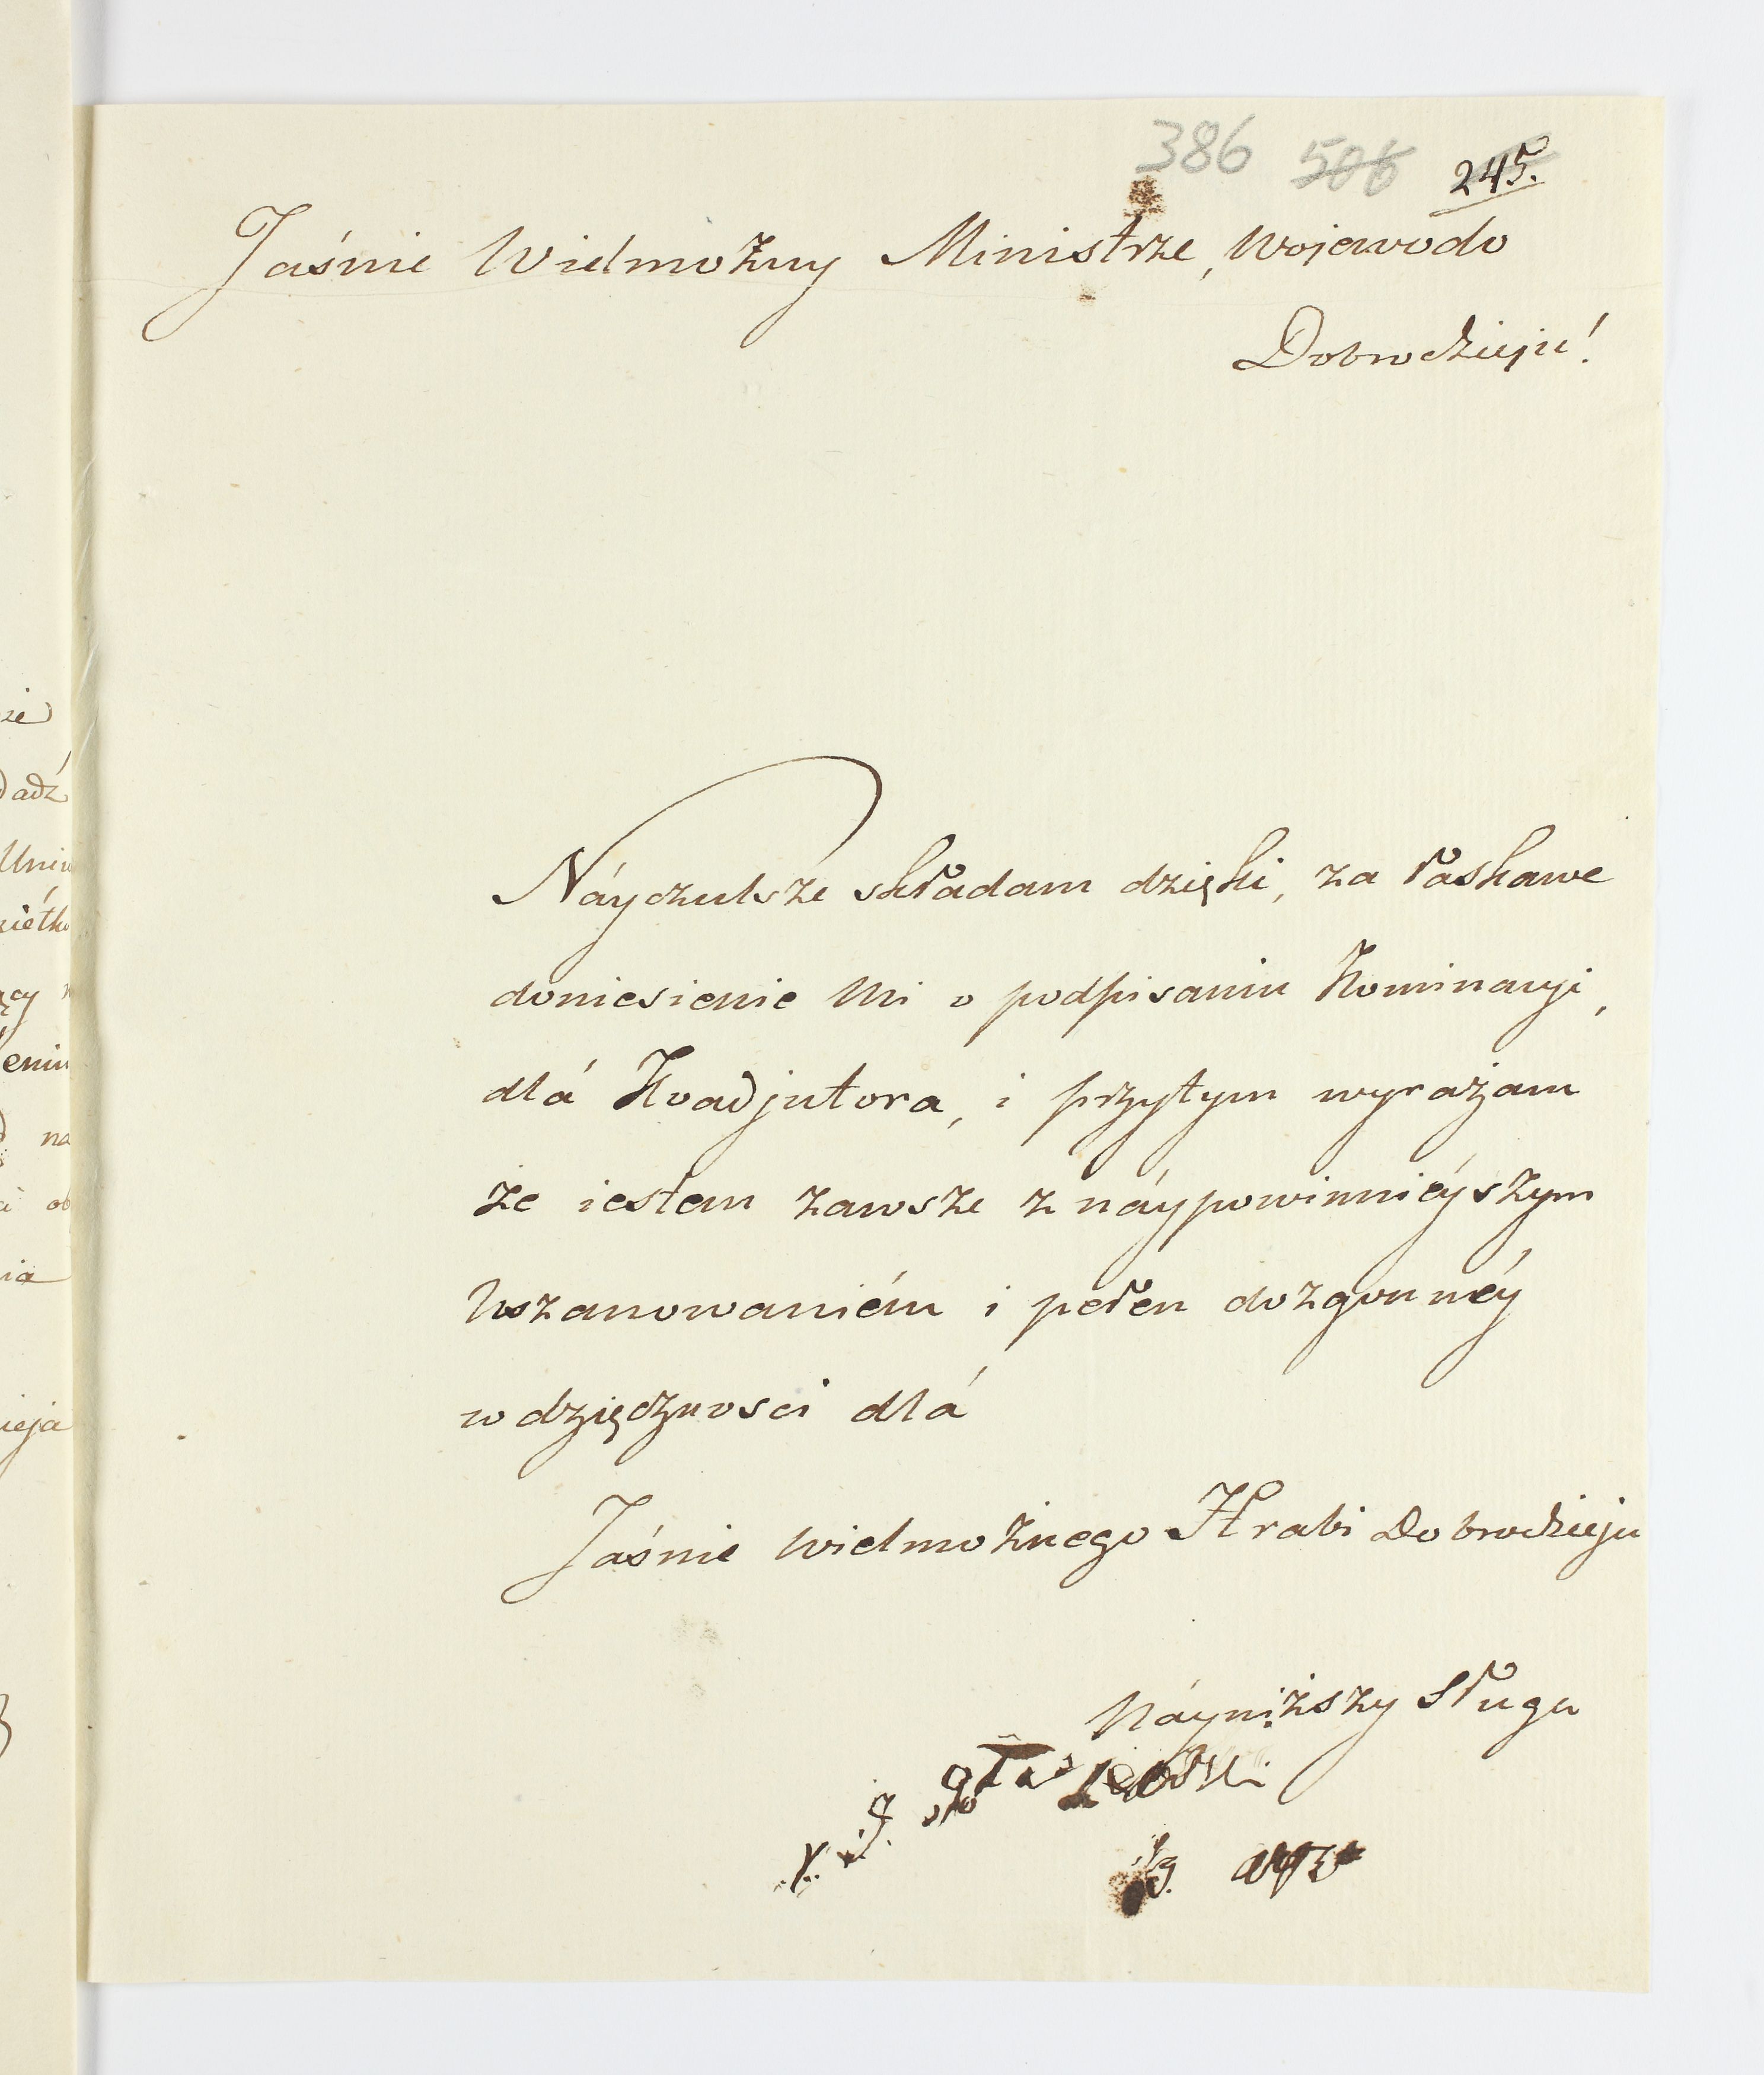 386 506 245.
Jaśnie Wielmożny Ministrze, Wojewodo
Dobrodzieju!
Náyczulsze składam dzięki, za łaskawe
doniesienie mi o podpisaniu Nominacyi,
dlá Koadjutora, i przytym wyrażam
że iestem zawsze z náypowinniéyszym
Uszanowaniém i pełen dozgonnéy
wdzięczności dlá
Jaśnie Wielmożnego Hrabi Dobrodzieja
Náyniższy Sługa